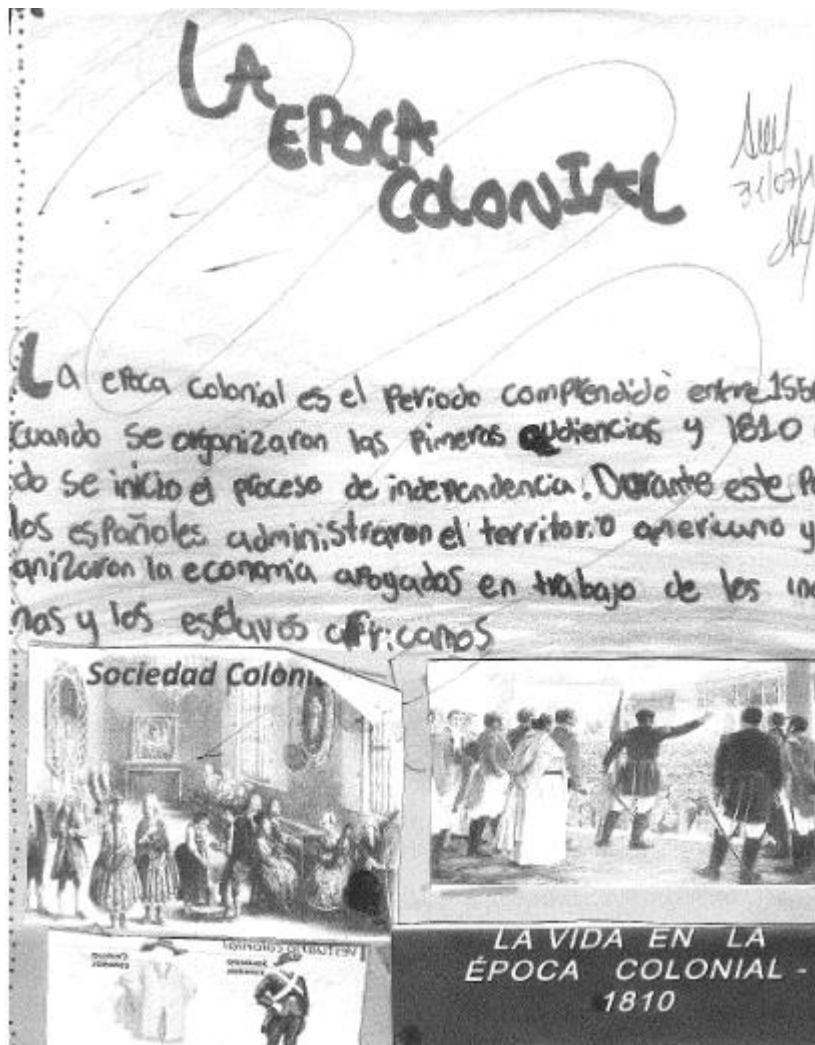 LA
EPOCA
COLONIAL
31/07/1
La epoca colonial es el Periodo comprendido entre 155
cuando se organizaron las Pimeras audiencias y 1810
do se inicio el proceso de independencia. Durante este Pe
los españoles administraron el territorio americano y
ganizaron la economia apoyados en trabajo de los in
nas y los esclavos africanos
Sociedad Coloni
vestuario colonial
LA VIDA EN LA
ÉPOCA COLONIAL -
1810